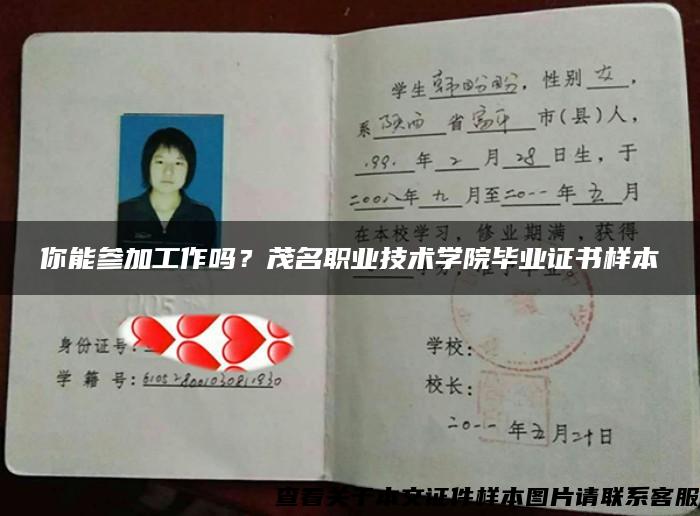 学生韩盼盼，性别女，
系陕西省富平市(县)人，
199.年2月28日生，于
二00八年九月至二0一一年五月
在本校学习，修业期满，获得
你能参加工作吗？茂名职业技术学院毕业证书样本
身份证号：
学籍号：
学校：
校长：
二0一一年五月二十日
查看关于本文证件样本图片请联系客服